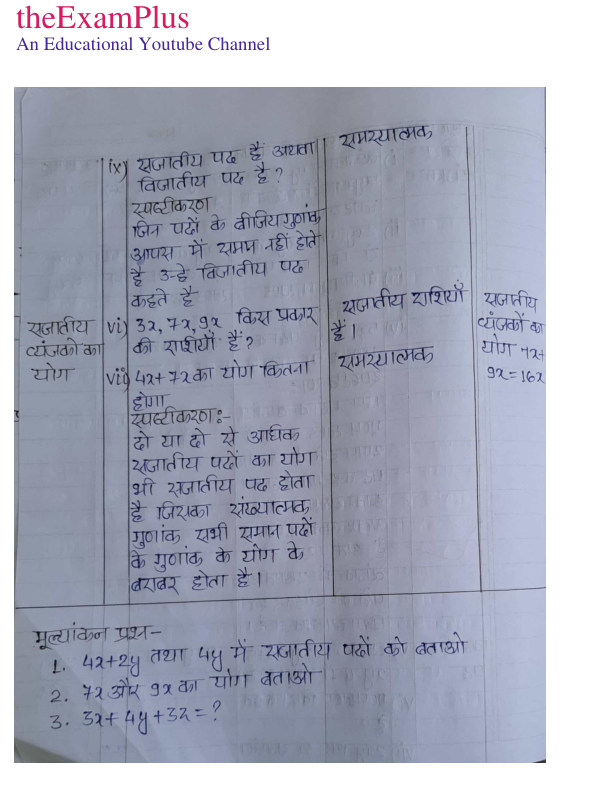 theExamPlus
An Educational Youtube Channel
ix) सजातीय पद है अथवा
विजातीय पद है ?
स्पष्टीकरण
जिन पदों के बीजियगुणांक
आपस में समान नहीं होते
है उन्हे विजातीय पद
कहते है
समस्यात्मक
सजातीय
व्यंजको का
योग
vi) 3x, 7x, 9x किस प्रकार
की राशियाँ हैं ?
vii) 4x+7x का योग कितना
होगा
स्पष्टीकरण :-
दो या दो से अधिक
सजातीय पदों का योग
भी सजातीय पद होता
है जिसका संख्यात्मक
गुणांक सभी समान पदों
के गुणांक के योग के
बराबर होता है।
सजातीय राशियाँ
हैं।
समस्यात्मक
सजातीय
व्यंजकों का
योग 7x+
9x=16x
मूल्यांकन प्रश्न-
1. 4x+2y तथा 4y में सजातीय पदों को बताओ
2. 7x और 9x का योग बताओ
3. 3x+4y+3x=?